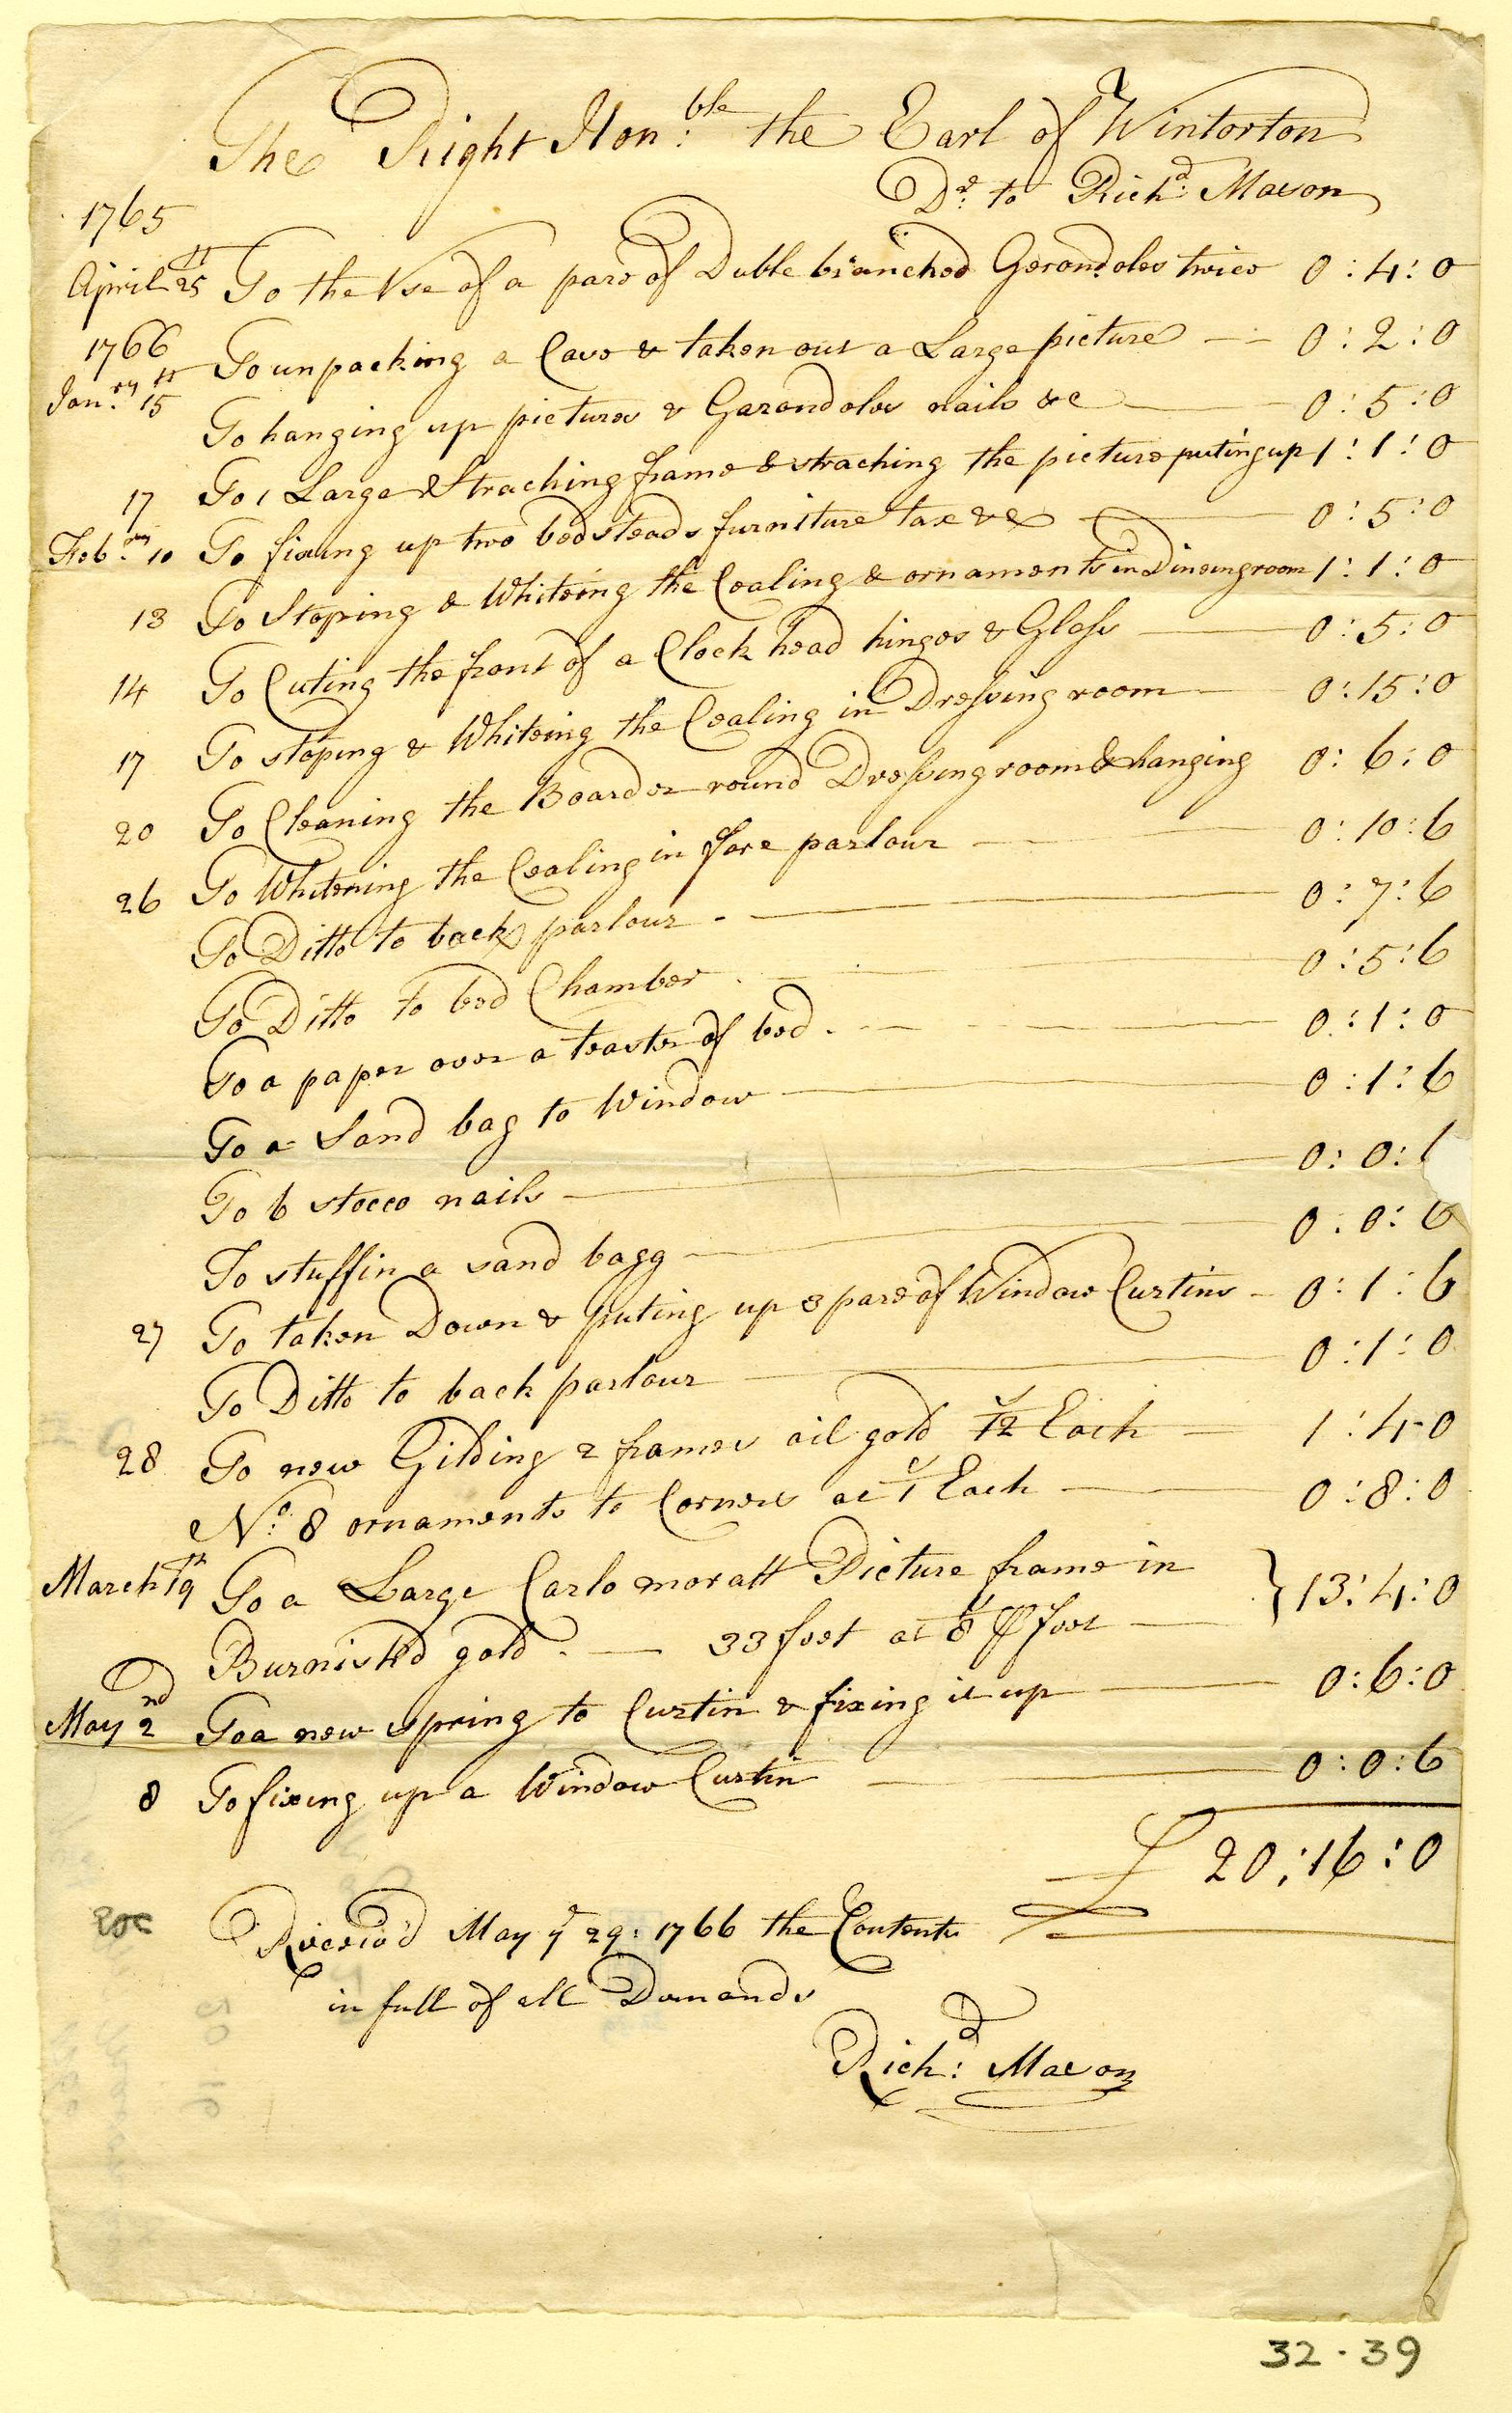 The Right Hon:ble the Earl of Wintorton
Dr: to Richd: Mason
1765
April 25 To the Use of a pare of Duble branched Gerondoles twice 0:4:0
1766
Janry: 15 To unpacking a Case & taken out a Large picture 0:2:0
To hanging up pictures & Garondoles nails &c 0:5:0
17 To 1 Large Straching frame & straching the picture puting up 1:1:0
Febry: 10 To fixing up two bedsteads furniture tax &c 0:5:0
13 To Stoping & Whiteing the Cealing & ornaments in Dineing room 1:1:0
14 To Cuting the front of a Clock head hinges & Glass 0:5:0
17 To stoping & Whiteing the Cealing in Dressing room 0:15:0
20 To Cleaning the Boarder round Dressing room & hanging 0:6:0
26 To Whitening the Cealing in fore parlour 0:10:6
To Ditto to back parlour 0:7:6
To Ditto to bed Chamber 0:5:6
To a paper over a teaster of bed 0:1:0
To a Sand bag to Window 0:1:6
To 6 stocco nails 0:0:
To stuffin a sand bagg 0:0:6
27 To taken Down & puting up 3 pare of Window Curtins 0:1:6
To Ditto to back parlour 0:1:0
28 To new Gilding 2 frames oil gold 12/ Each 1:4:0
No: 8 ornaments to Corners at 1/ Each 0:8:0
March 19 To a Large Carlo moratt Picture frame in
Burnish'd gold. 33 feet at 8/ ⅌ foot 13:4:0
May 2nd To a new spring to Curtin & fixing it up 0:6:0
8 To fixeing up a Window Curtin 0:0:6
£ 20:16:0
Receiv'd May ye 29: 1766 the Contents
in full of all Demands
Richd: Mason
32-39